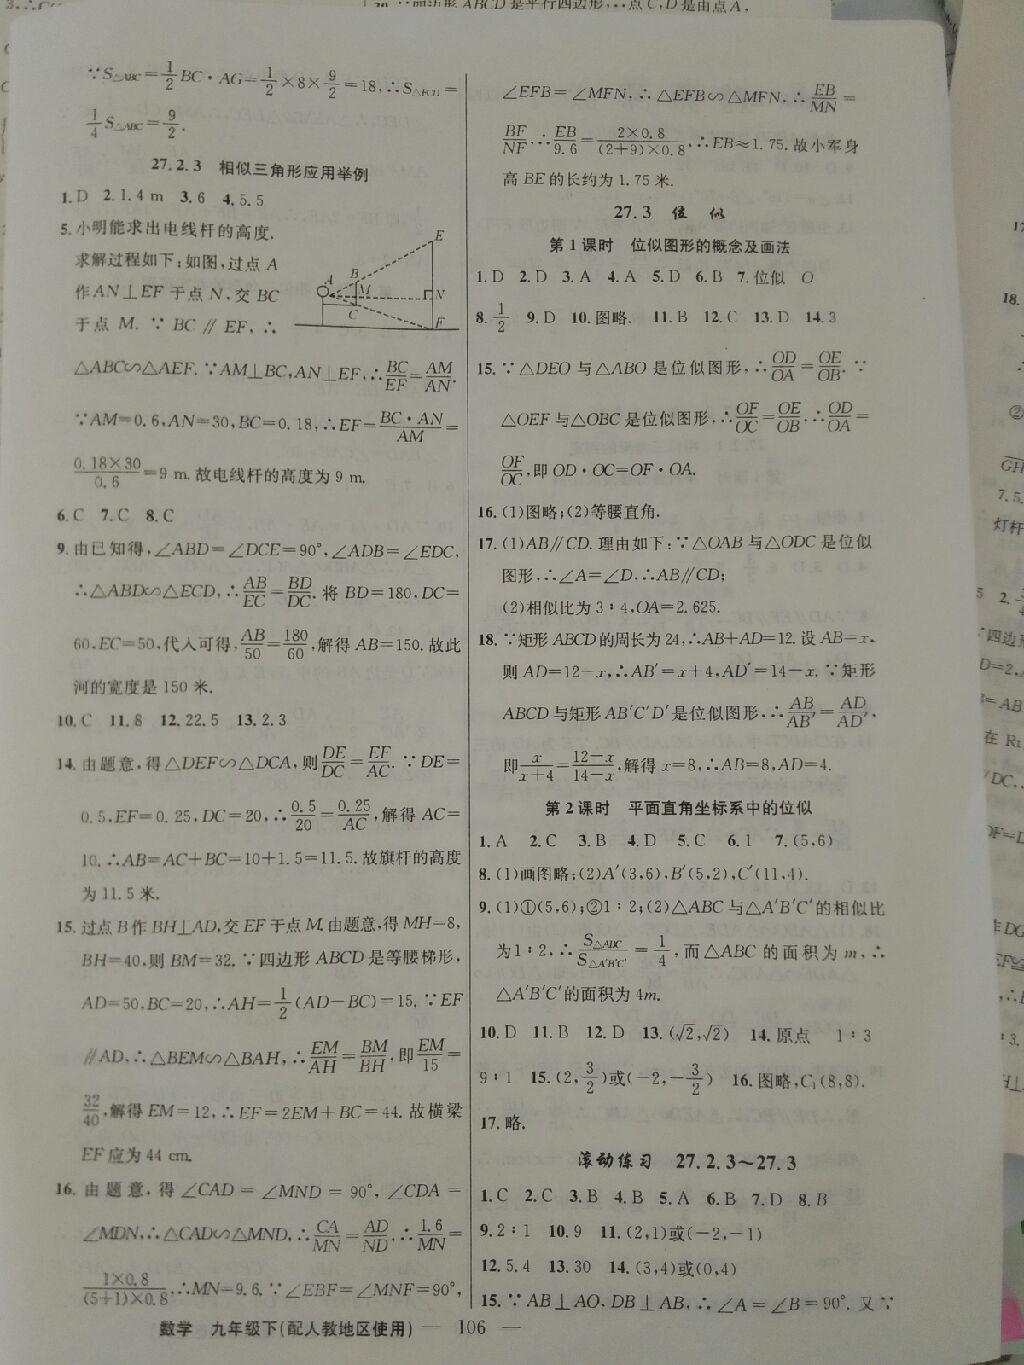 ∵S△ABC=1/2BC·AG=1/2×8×9/2=18,∴S△ECD=
1/4S△ABC=9/2.
27.2.3 相似三角形应用举例
1.D 2.1.4 m 3.6 4.5.5
5.小明能求出电线杆的高度.
求解过程如下:如图,过点A
作AN⊥EF于点N,交BC
于点M.∵BC∥EF,∴
△ABC∽△AEF.∵AM⊥BC,AN⊥EF,∴BC/EF=AM/AN.
∵AM=0.6,AN=30,BC=0.18,∴EF=BC·AN/AM=
0.18×30/0.6=9 m.故电线杆的高度为9 m.
6.C 7.C 8.C
9.由已知得,∠ABD=∠DCE=90°,∠ADB=∠EDC,
∴△ABD∽△ECD,∴AB/EC=BD/DC.将BD=180,DC=
60,EC=50,代入可得,AB/50=180/60,解得AB=150.故此
河的宽度是150米.
10.C 11.8 12.22.5 13.2.3
14.由题意,得△DEF∽△DCA,则DE/DC=EF/AC.∵DE=
0.5,EF=0.25,DC=20,∴0.5/20=0.25/AC,解得AC=
10.∴AB=AC+BC=10+1.5=11.5.故旗杆的高度
为11.5米.
15.过点B作BH⊥AD,交EF于点M.由题意,得MH=8,
BH=40,则BM=32.∵四边形ABCD是等腰梯形,
AD=50,BC=20,∴AH=1/2(AD−BC)=15.∵EF
∥AD,∴△BEM∽△BAH,∴EM/AH=BM/BH,即EM/15=
32/40,解得EM=12,∴EF=2EM+BC=44.故横梁
EF应为44 cm.
16.由题意,得∠CAD=∠MND=90°,∠CDA=
∠MDN,∴△CAD∽△MND,∴CA/MN=AD/ND.∴1.6/MN=
1×0.8/(5+1)×0.8.∴MN=9.6.∵∠EBF=∠MNF=90°,
∠EFB=∠MFN,∴△EFB∽△MFN,∴EB/MN=
BF/NF.∴EB/9.6=2×0.8/(2+9)×0.8,∴EB≈1.75.故小军身
高BE的长约为1.75米.
27.3 位 似
第1课时 位似图形的概念及画法
1.D 2.D 3.A 4.A 5.D 6.B 7.位似 O
8.1/2 9.D 10.图略. 11.B 12.C 13.D 14.3
15.∵△DEO与△ABO是位似图形,∴OD/OA=OE/OB.∵
△OEF与△OBC是位似图形,∴OF/OC=OE/OB.∴OD/OA=
OF/OC,即OD·OC=OF·OA.
16.(1)图略;(2)等腰直角.
17.(1)AB∥CD.理由如下:∵△OAB与△ODC是位似
图形,∴∠A=∠D.∴AB∥CD;
(2)相似比为3∶4,OA=2.625.
18.∵矩形ABCD的周长为24,∴AB+AD=12.设AB=x,
则AD=12−x,∴AB′=x+4,AD′=14−x.∵矩形
ABCD与矩形AB′C′D′是位似图形,∴AB/AB′=AD/AD′,
即x/x+4=12−x/14−x,解得x=8,∴AB=8,AD=4.
第2课时 平面直角坐标系中的位似
1.A 2.C 3.B 4.D 5.C 6.1 7.(5,6)
8.(1)画图略;(2)A′(3,6),B′(5,2),C′(11,4).
9.(1)①(5,6);②1∶2;(2)△ABC与△A′B′C′的相似比
为1∶2,∴S△ABC/S△A′B′C′=1/4,而△ABC的面积为m,∴
△A′B′C′的面积为4m.
10.D 11.B 12.D 13.(√2,√2) 14.原点 1∶3
9∶1 15.(2,3/2)或(−2,−3/2) 16.图略,C₁(8,8).
17.略.
滚动练习 27.2.3～27.3
1.C 2.C 3.B 4.B 5.A 6.B 7.D 8.B
9.2∶1 10.9 11.(2,1)或(−2,−1)
12.5.4 13.30 14.(3,4)或(0,4)
15.∵AB⊥AO,DB⊥AB,∴∠A=∠B=90°.又∵
数学 九年级下(配人教地区使用) — 106 —